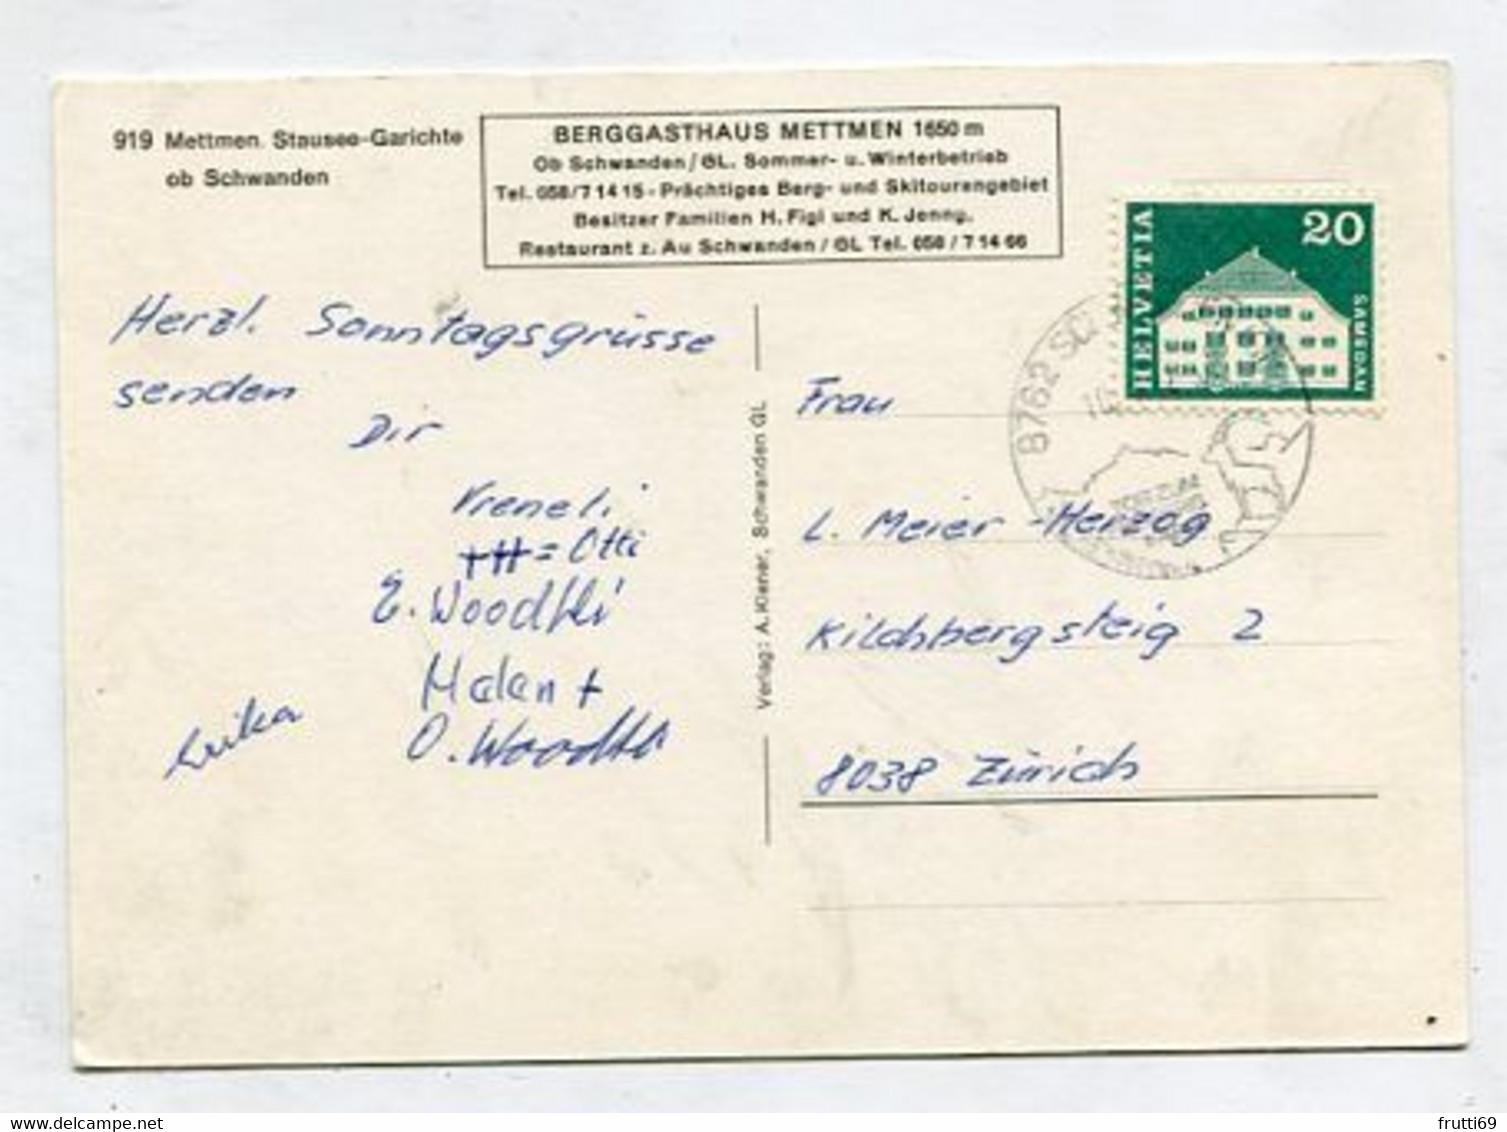 919 Mettmen. Stausee-Garichte
ob Schwanden
BERGGASTHAUS METTMEN 1650 m
Ob Schwanden/GL. Sommer- u. Winterbetrieb
Tel. 058/7 14 15 - Prächtiges Berg- und Skitourengebiet
Besitzer Familien H. Figi und K. Jenny.
Restaurant z. Au Schwanden / GL Tel. 058 / 7 14 66
HELVETIA
20
SAMEDAN
8762
Herzl. Sonntagsgrüsse
senden
Dir
Vreneli
= Otti
E. Woodtli
Helen +
O. Woodtli
Erika
Verlag: A. Klener, Schwanden GL
Frau
L. Meier-Herzog
Kilchbergsteig 2
8038 Zürich
frutti69